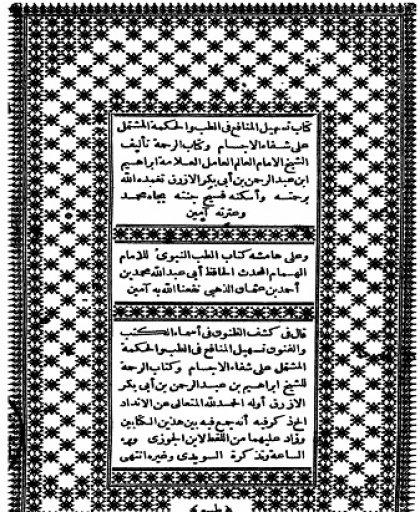 كتاب تسهيل المنافع فى الطب والحكمة المشتمل
على شفاء الاجسام وكتاب الرحمة تأليف
الشيخ الامام العالم العامل العلامة ابراهيم
ابن عبد الرحمن بن أبى بكر الازرق تغمده الله
برحمته وأسكنه فسيح جنته بجاه محمد
وعترته آمين
وعلى هامشه كتاب الطب النبوى للامام
الهمام المحدث الحافظ أبى عبد الله محمد بن
أحمد بن عثمان الذهبى نفعنا الله به آمين
قال فى كشف الظنون فى أسماء الكتب
والفنون تسهيل المنافع فى الطب والحكمة
المشتمل على شفاء الاجسام وكتاب الرحمة
للشيخ ابراهيم بن عبد الرحمن بن أبى بكر
الازرق أوله الحمد لله المتعالى عن الانداد
الخ ذكر فيه أنه جمع فيه بين هذين الكتابين
وزاد عليهما من اللقط لابن الجوزى وبرء
الساعة وتذكرة السويدى وغيره انتهى